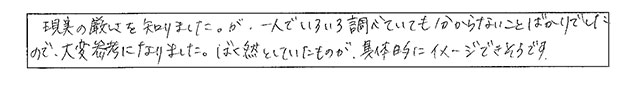 現実の厳しさを知りました。が、一人でいろいろ調べていても分からないことばかりでした
ので、大変参考になりました。ばく然としていたものが、具体的にイメージできそうです。